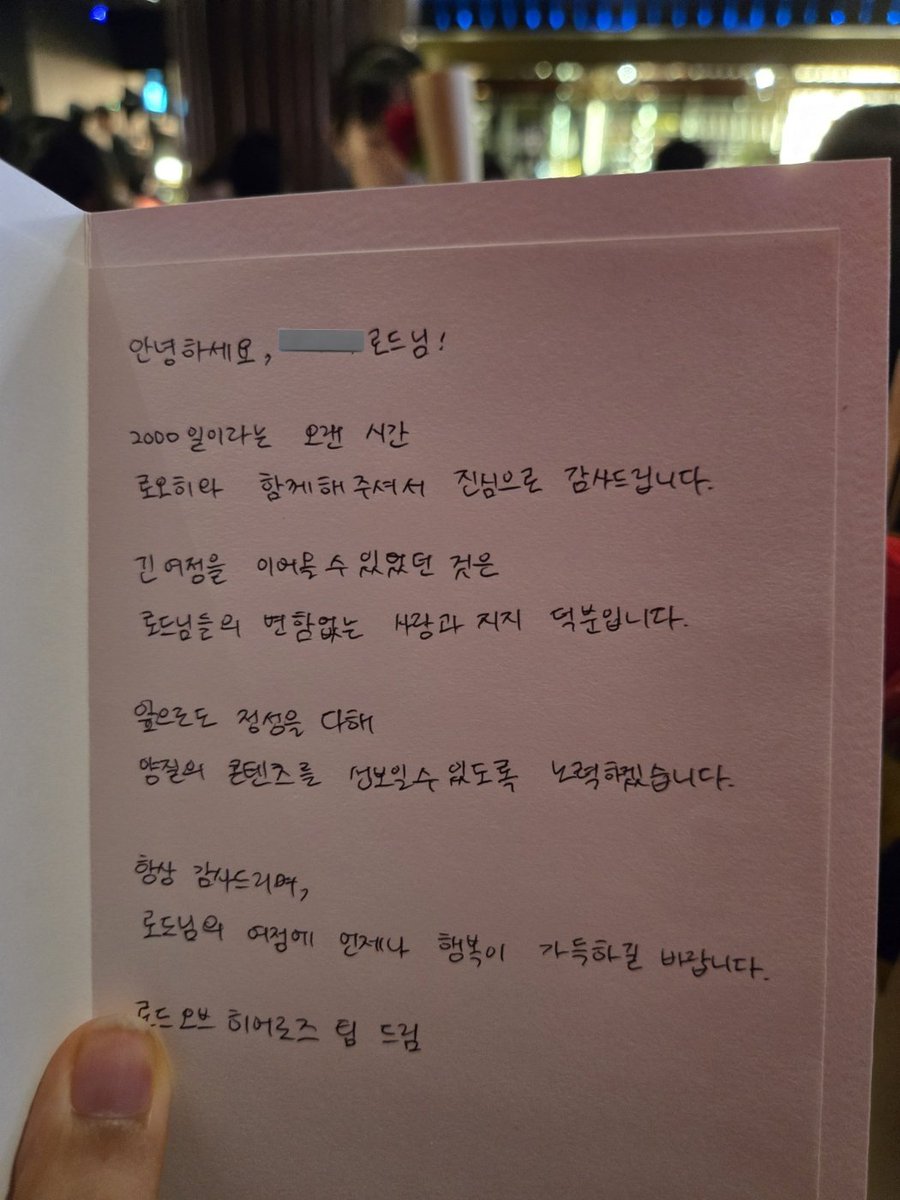 안녕하세요, 로드님!
2000일이라는 오랜 시간
로오히와 함께해주셔서 진심으로 감사드립니다.
긴 여정을 이어올 수 있었던 것은
로드님들의 변함없는 사랑과 지지 덕분입니다.
앞으로도 정성을 다해
양질의 콘텐츠를 선보일 수 있도록 노력하겠습니다.
항상 감사드리며,
로드님의 여정에 언제나 행복이 가득하길 바랍니다.
로드 오브 히어로즈 팀 드림